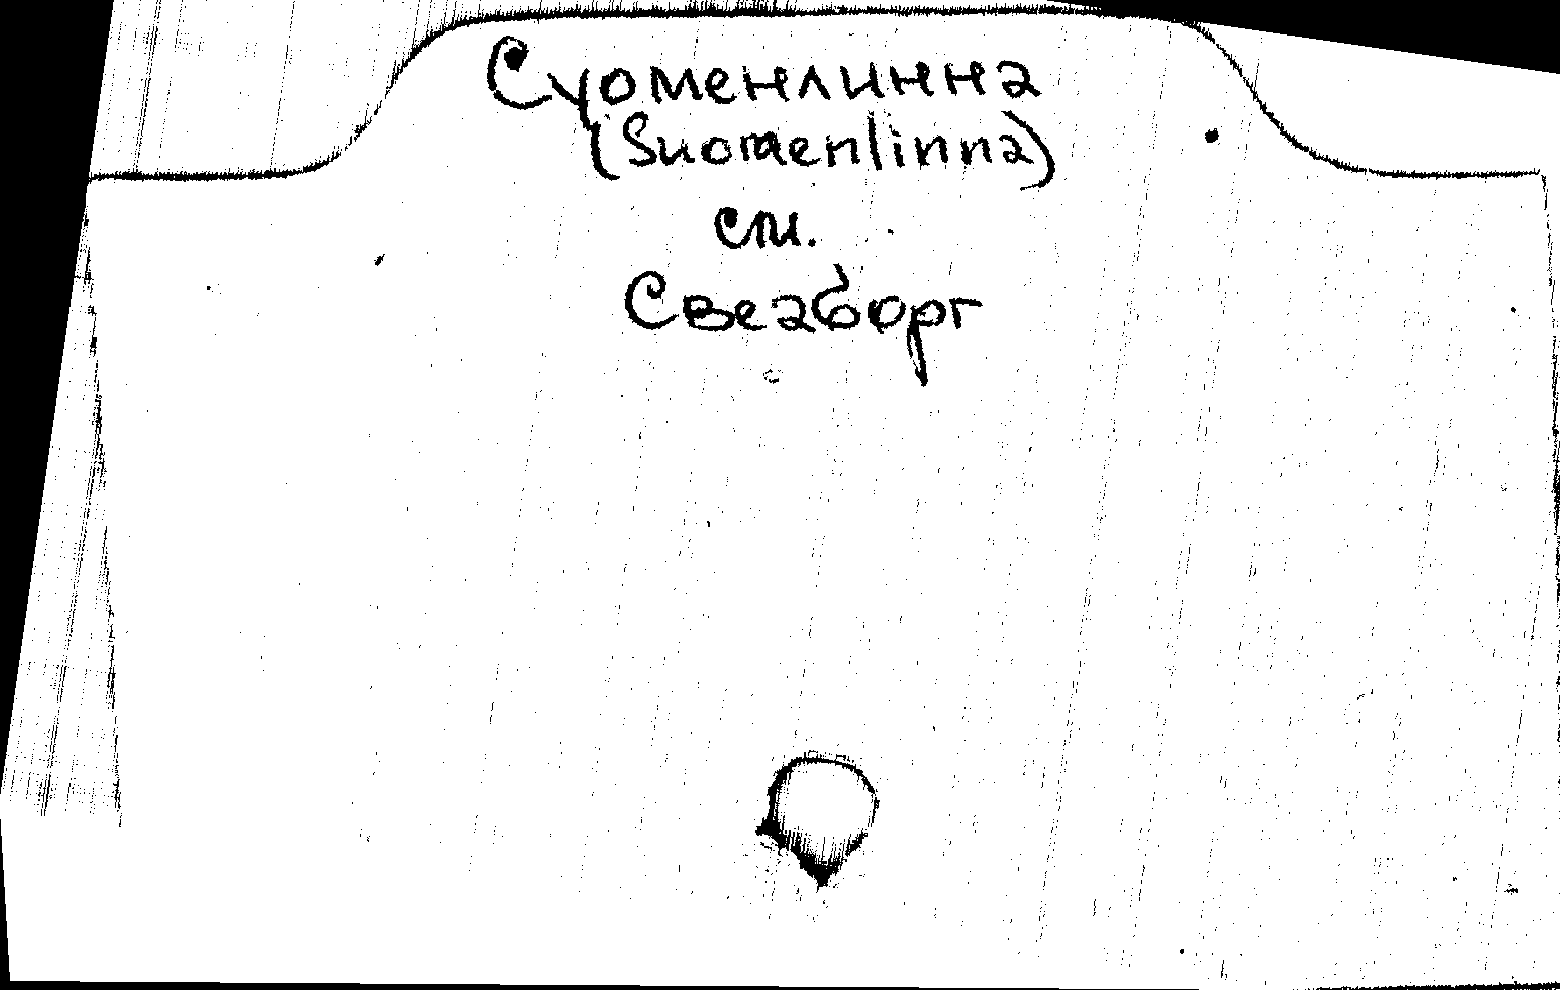 Суоменлинна
(Suomenlinna)
см.
Свеаборг